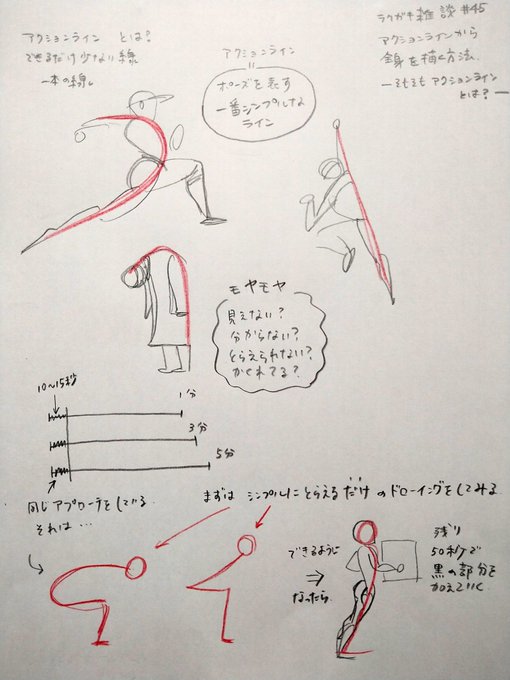 ラクガキ雑談 #45
アクションラインから
全身を描く方法
ーそもそもアクションライン
とは?ー
アクションライン とは?
できるだけ少ない線
一本の線。
アクションライン
=
ポーズを表す
一番シンプルな
ライン
モヤモヤ
見えない?
分からない?
とらえられない?
かくれてる?
10〜15秒
1分
3分
5分
同じアプローチをしている
それは…
まずは シンプルにとらえるだけ のドローイングをしてみる
できるように
⇒
なったら
残り
50秒で
黒の部分を
加えていく